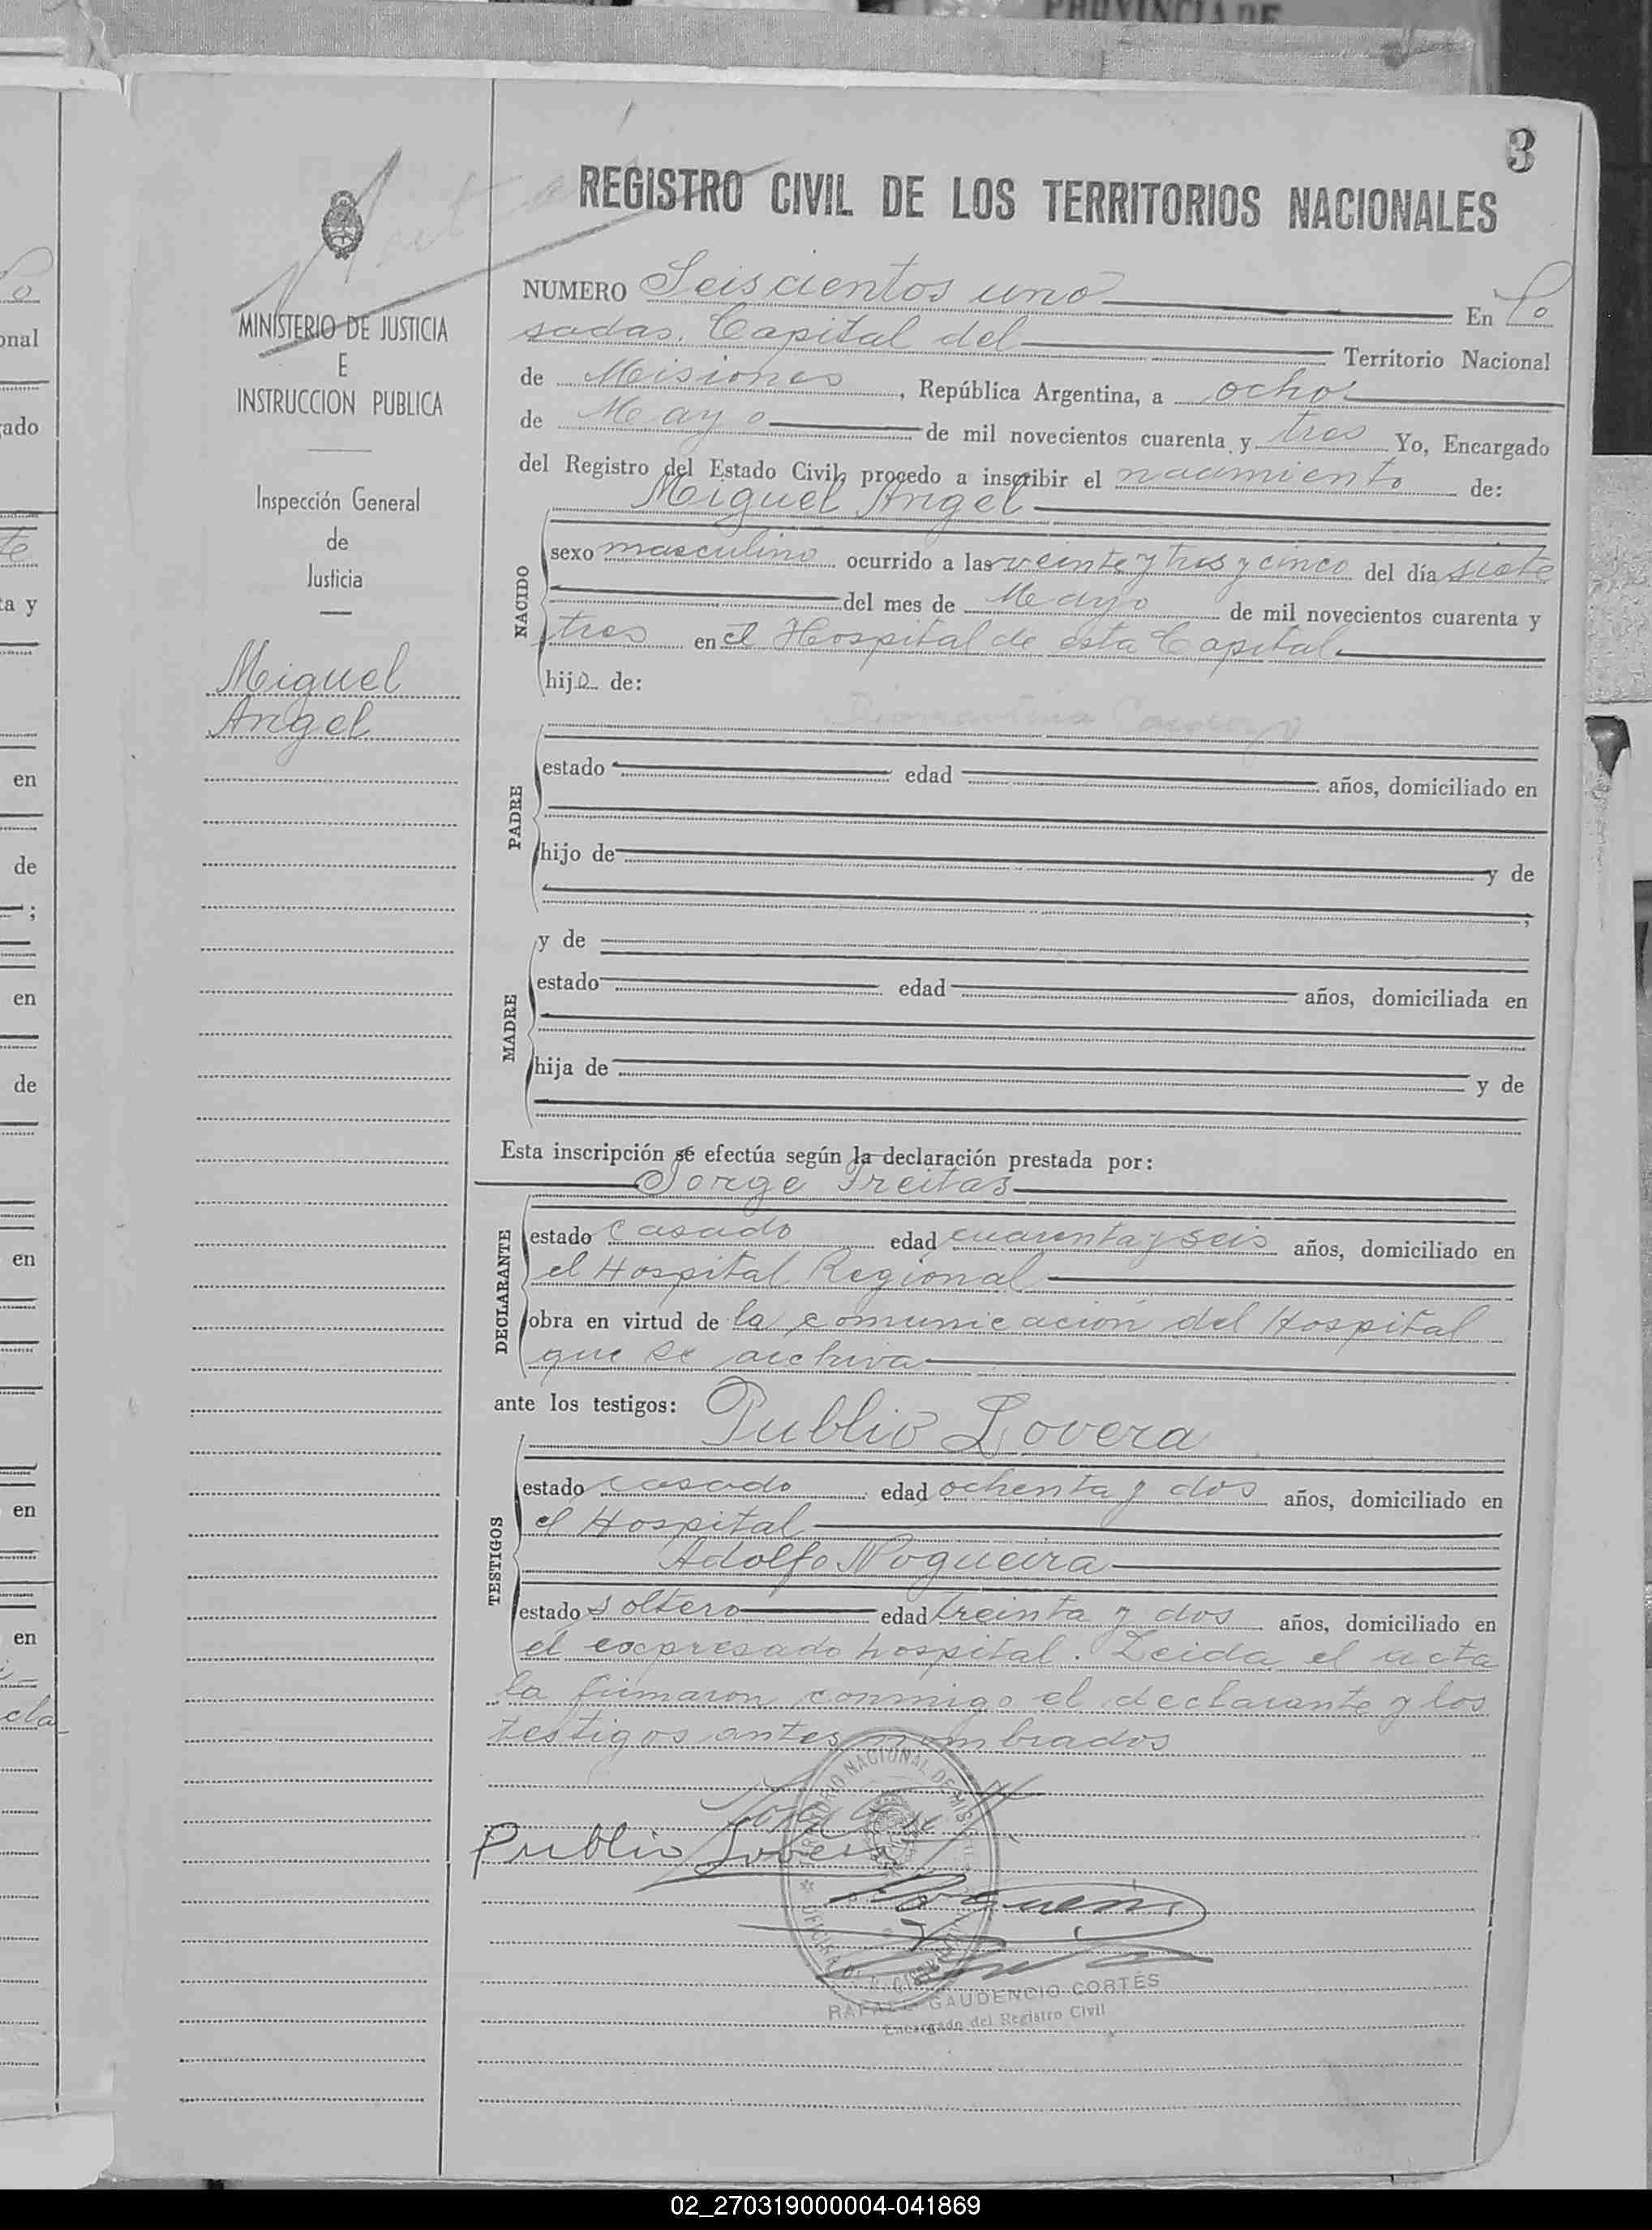 PROVINCIA DE
3
REGISTRO CIVIL DE LOS TERRITORIOS NACIONALES
MINISTERIO DE JUSTICIA
E
INSTRUCCION PUBLICA
Inspección General
de
Justicia
Miguel
Angel
NUMERO Seiscientos uno En Po
sadas, Capital del Territorio Nacional
de Misiones, República Argentina, a ocho
de Mayo de mil novecientos cuarenta y tres Yo, Encargado
del Registro del Estado Civil, procedo a inscribir el nacimiento de:
Miguel Angel
NACIDO
sexo masculino ocurrido a las veinte y tres y cinco del día siete
del mes de Mayo de mil novecientos cuarenta y
tres en el Hospital de esta Capital.
hijo de:
PADRE
estado edad años, domiciliado en
hijo de y de
;
MADRE
y de
estado edad años, domiciliada en
hija de y de
Esta inscripción se efectúa según la declaración prestada por:
Jorge Freitas
DECLARANTE
estado casado edad cuarenta y seis años, domiciliado en
el Hospital Regional
obra en virtud de la comunicación del Hospital
que se archiva
ante los testigos: Publio Lovera
TESTIGOS
estado casado edad ochenta y dos años, domiciliado en
el Hospital
Adolfo Nogueira
estado soltero edad treinta y dos años, domiciliado en
el expresado hospital. Leida el acta
la firmaron conmigo el declarante y los
testigos antes nombrados
Publio Lovera
RAFAEL GAUDENCIO CORTÉS
Encargado del Registro Civil
02_270319000004-041869